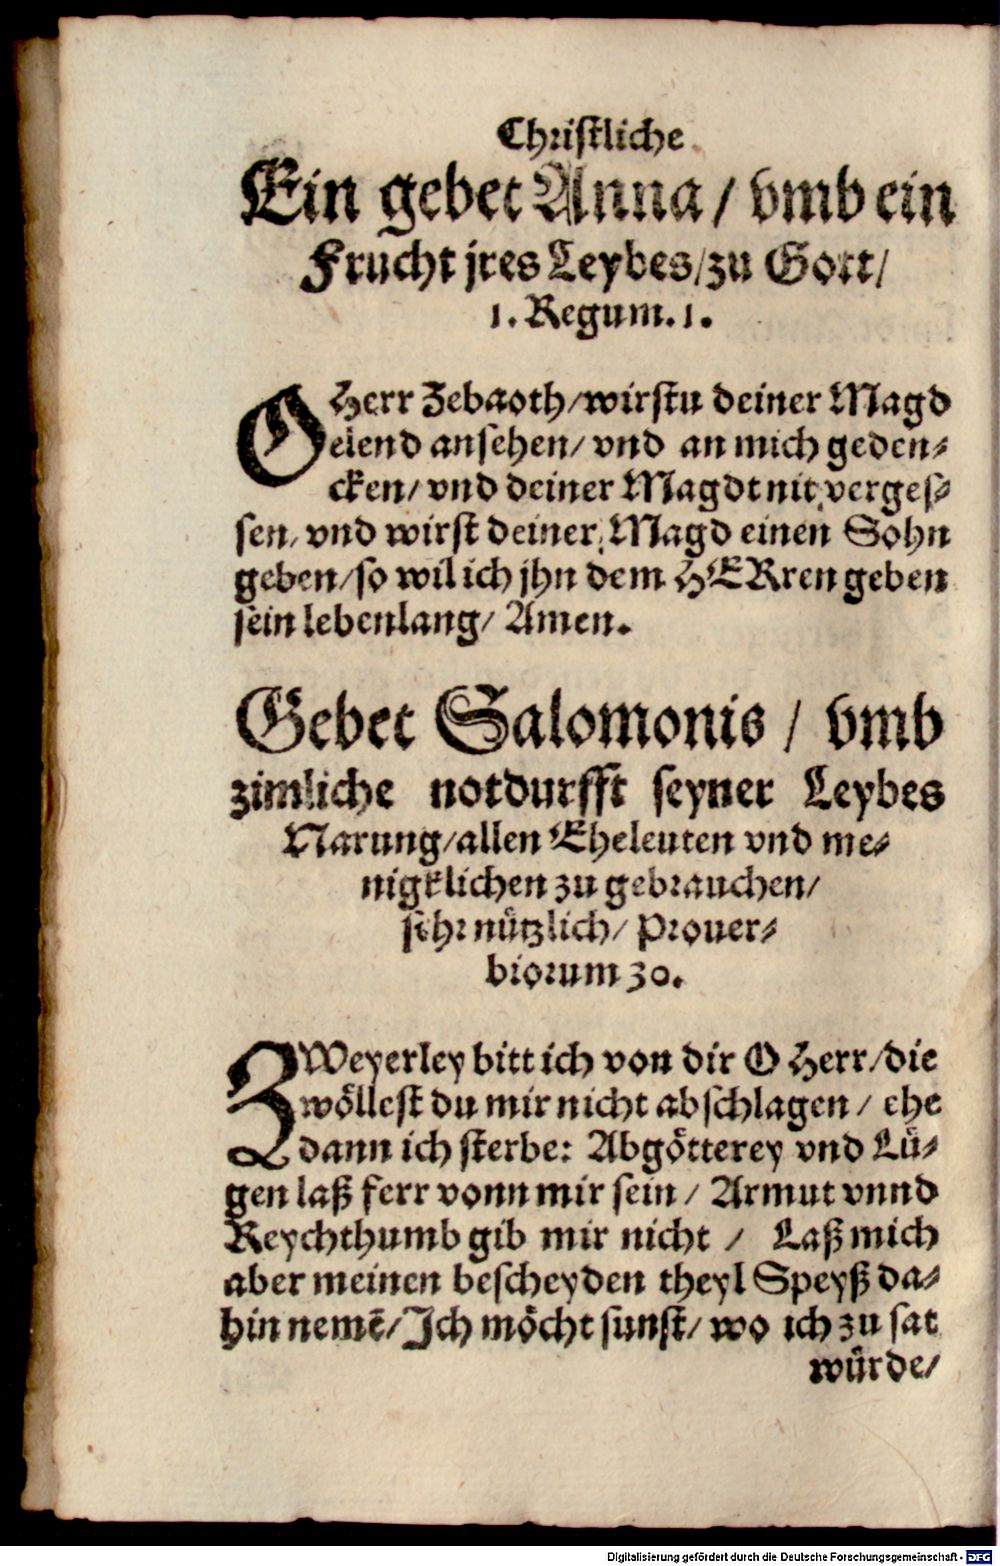 Christliche
Ein gebet Anna / vmb ein
Frucht jres Leybes / zu Gott /
1. Regum. 1.
O Herr Zebaoth / wirstu deiner Magd
elend ansehen / vnd an mich geden-
cken / vnd deiner Magdt nit verges-
sen, vnd wirst deiner Magd einen Sohn
geben / so wil ich jhn dem HERren geben
sein lebenlang / Amen.
Gebet Salomonis / vmb
zimliche notdurfft seyner Leybes
Narung / allen Eheleuten vnd me-
nigklichen zu gebrauchen /
sehr nützlich / Prouer-
biorum 30.
ZWeyerley bitt ich von dir O Herr / die
wöllest du mir nicht abschlagen / ehe
dann ich sterbe: Abgötterey vnd Lü-
gen laß ferr vonn mir sein / Armut vnnd
Reychthumb gib mir nicht / Laß mich
aber meinen bescheyden theyl Speyß da-
hin nemē / Ich möcht sunst / wo ich zu sat
würde /
Digitalisierung gefördert durch die Deutsche Forschungsgemeinschaft - DFG